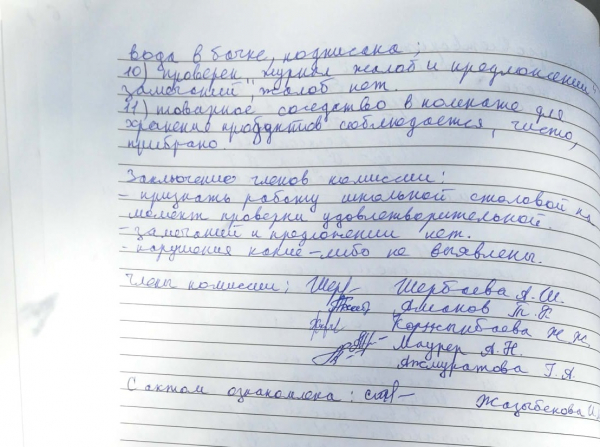 вода в бачке, подписана;
10) проверен „журнал жалоб и предложений"
замечаний, жалоб нет.
11) товарное соседство в
хранения продуктов соблюдается, чисто,
прибрано.
Заключение членов комиссии:
- признать работу школьной столовой на
момент проверки удовлетворительной.
- замечаний и предложении нет.
- нарушения какие-либо не выявлены.
Члены комиссии: Щербаева А.Ш.
Аманов Т.К.
Коржынбаева Ж.Ж.
Маурер А.Н.
Ахмуратова Г.А.
С актом ознакомлена: Жазыбекова